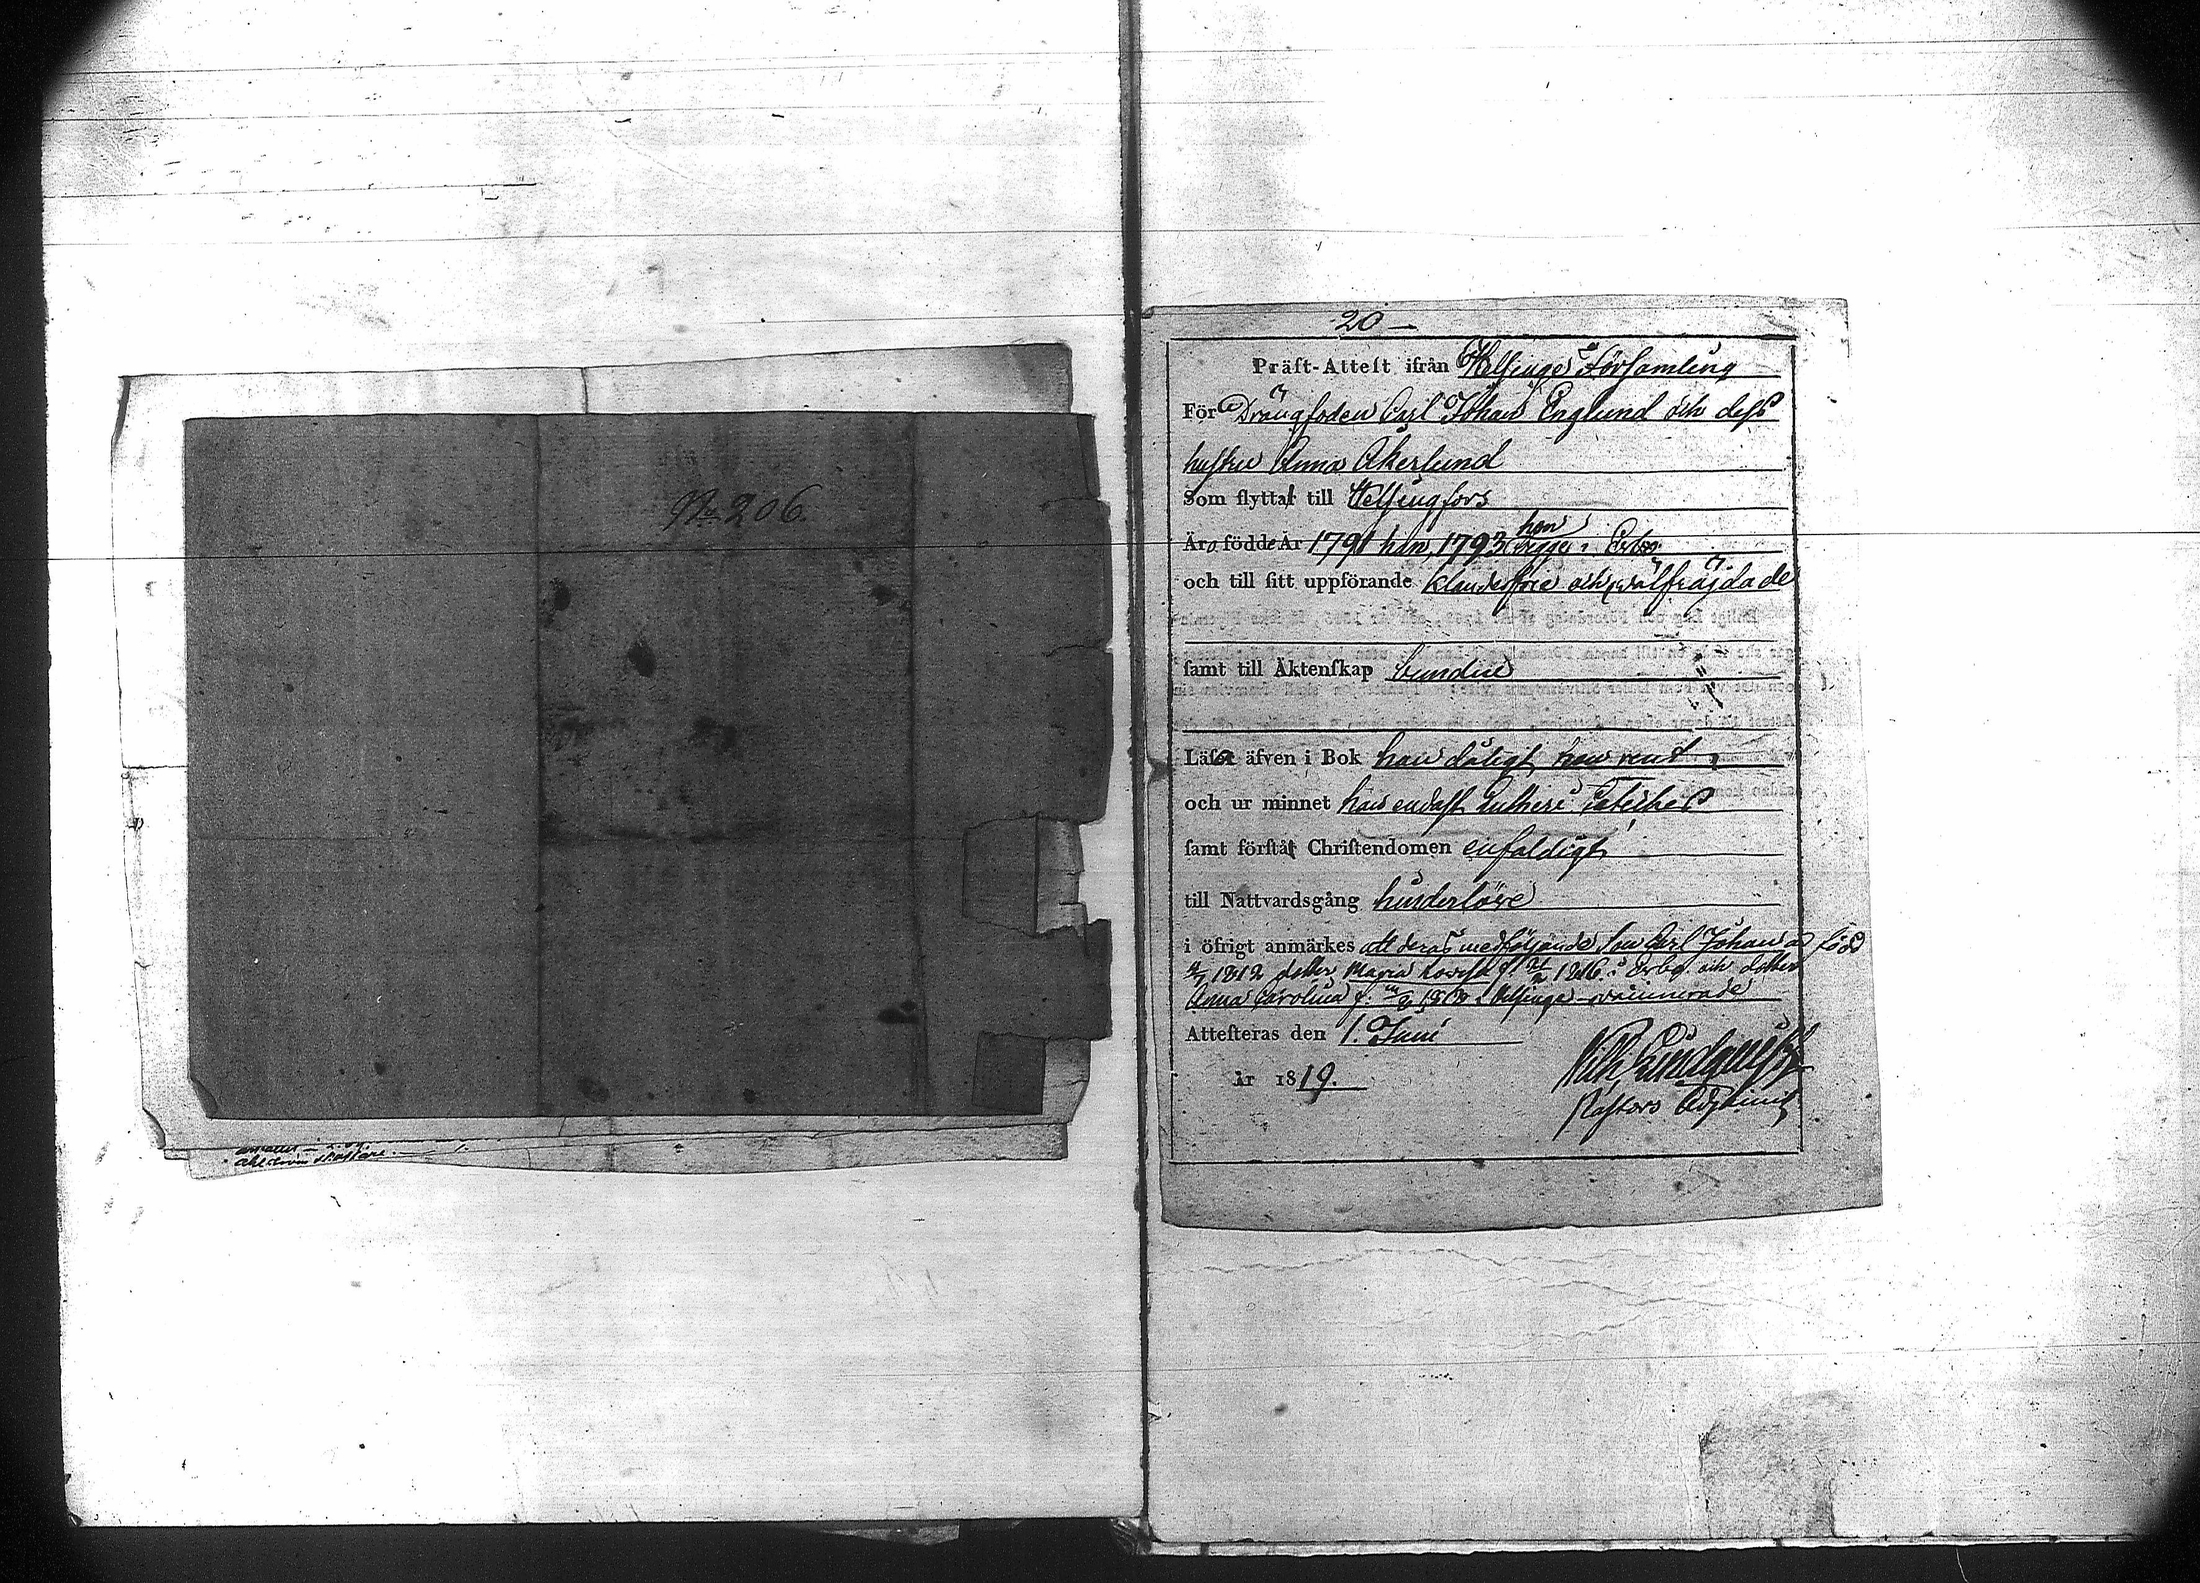 No 206.
20 —
Präſt-Atteſt ifrån Helsinge Församling
För Drängsoden Carl Johan Englund och dess
hustru Anna Åkerlund
Som flytta till Helsingfors
Äro födde År 1791 han, 1793 hon begge i Esbo
och till ſitt uppförande klanderfrie och wälfräjdade
ſamt till Äktenſkap bundne
Läſa äfven i Bok han dåligt hon rent
och ur minnet han endast Lutheri Cateches
ſamt förſtå Chriſtendomen enfaldigt
till Nattvardsgång hinderlöse
i öfrigt anmärkes att deras medföljande Son Carl Johan är född
1812 dotter Maria Lovisa f. 1816 i Esbo och dotter
Anna Carolina f. i Helsinge waccinerade
Atteſteras den 1. Juni
År 1819.
Pastors Adjunct